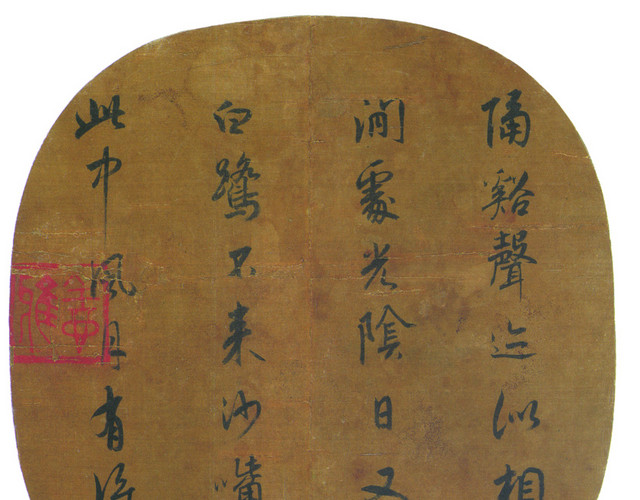 隔谿聲迹似相
澗處光陰日又
白鷺不来沙嘴
此中風月有